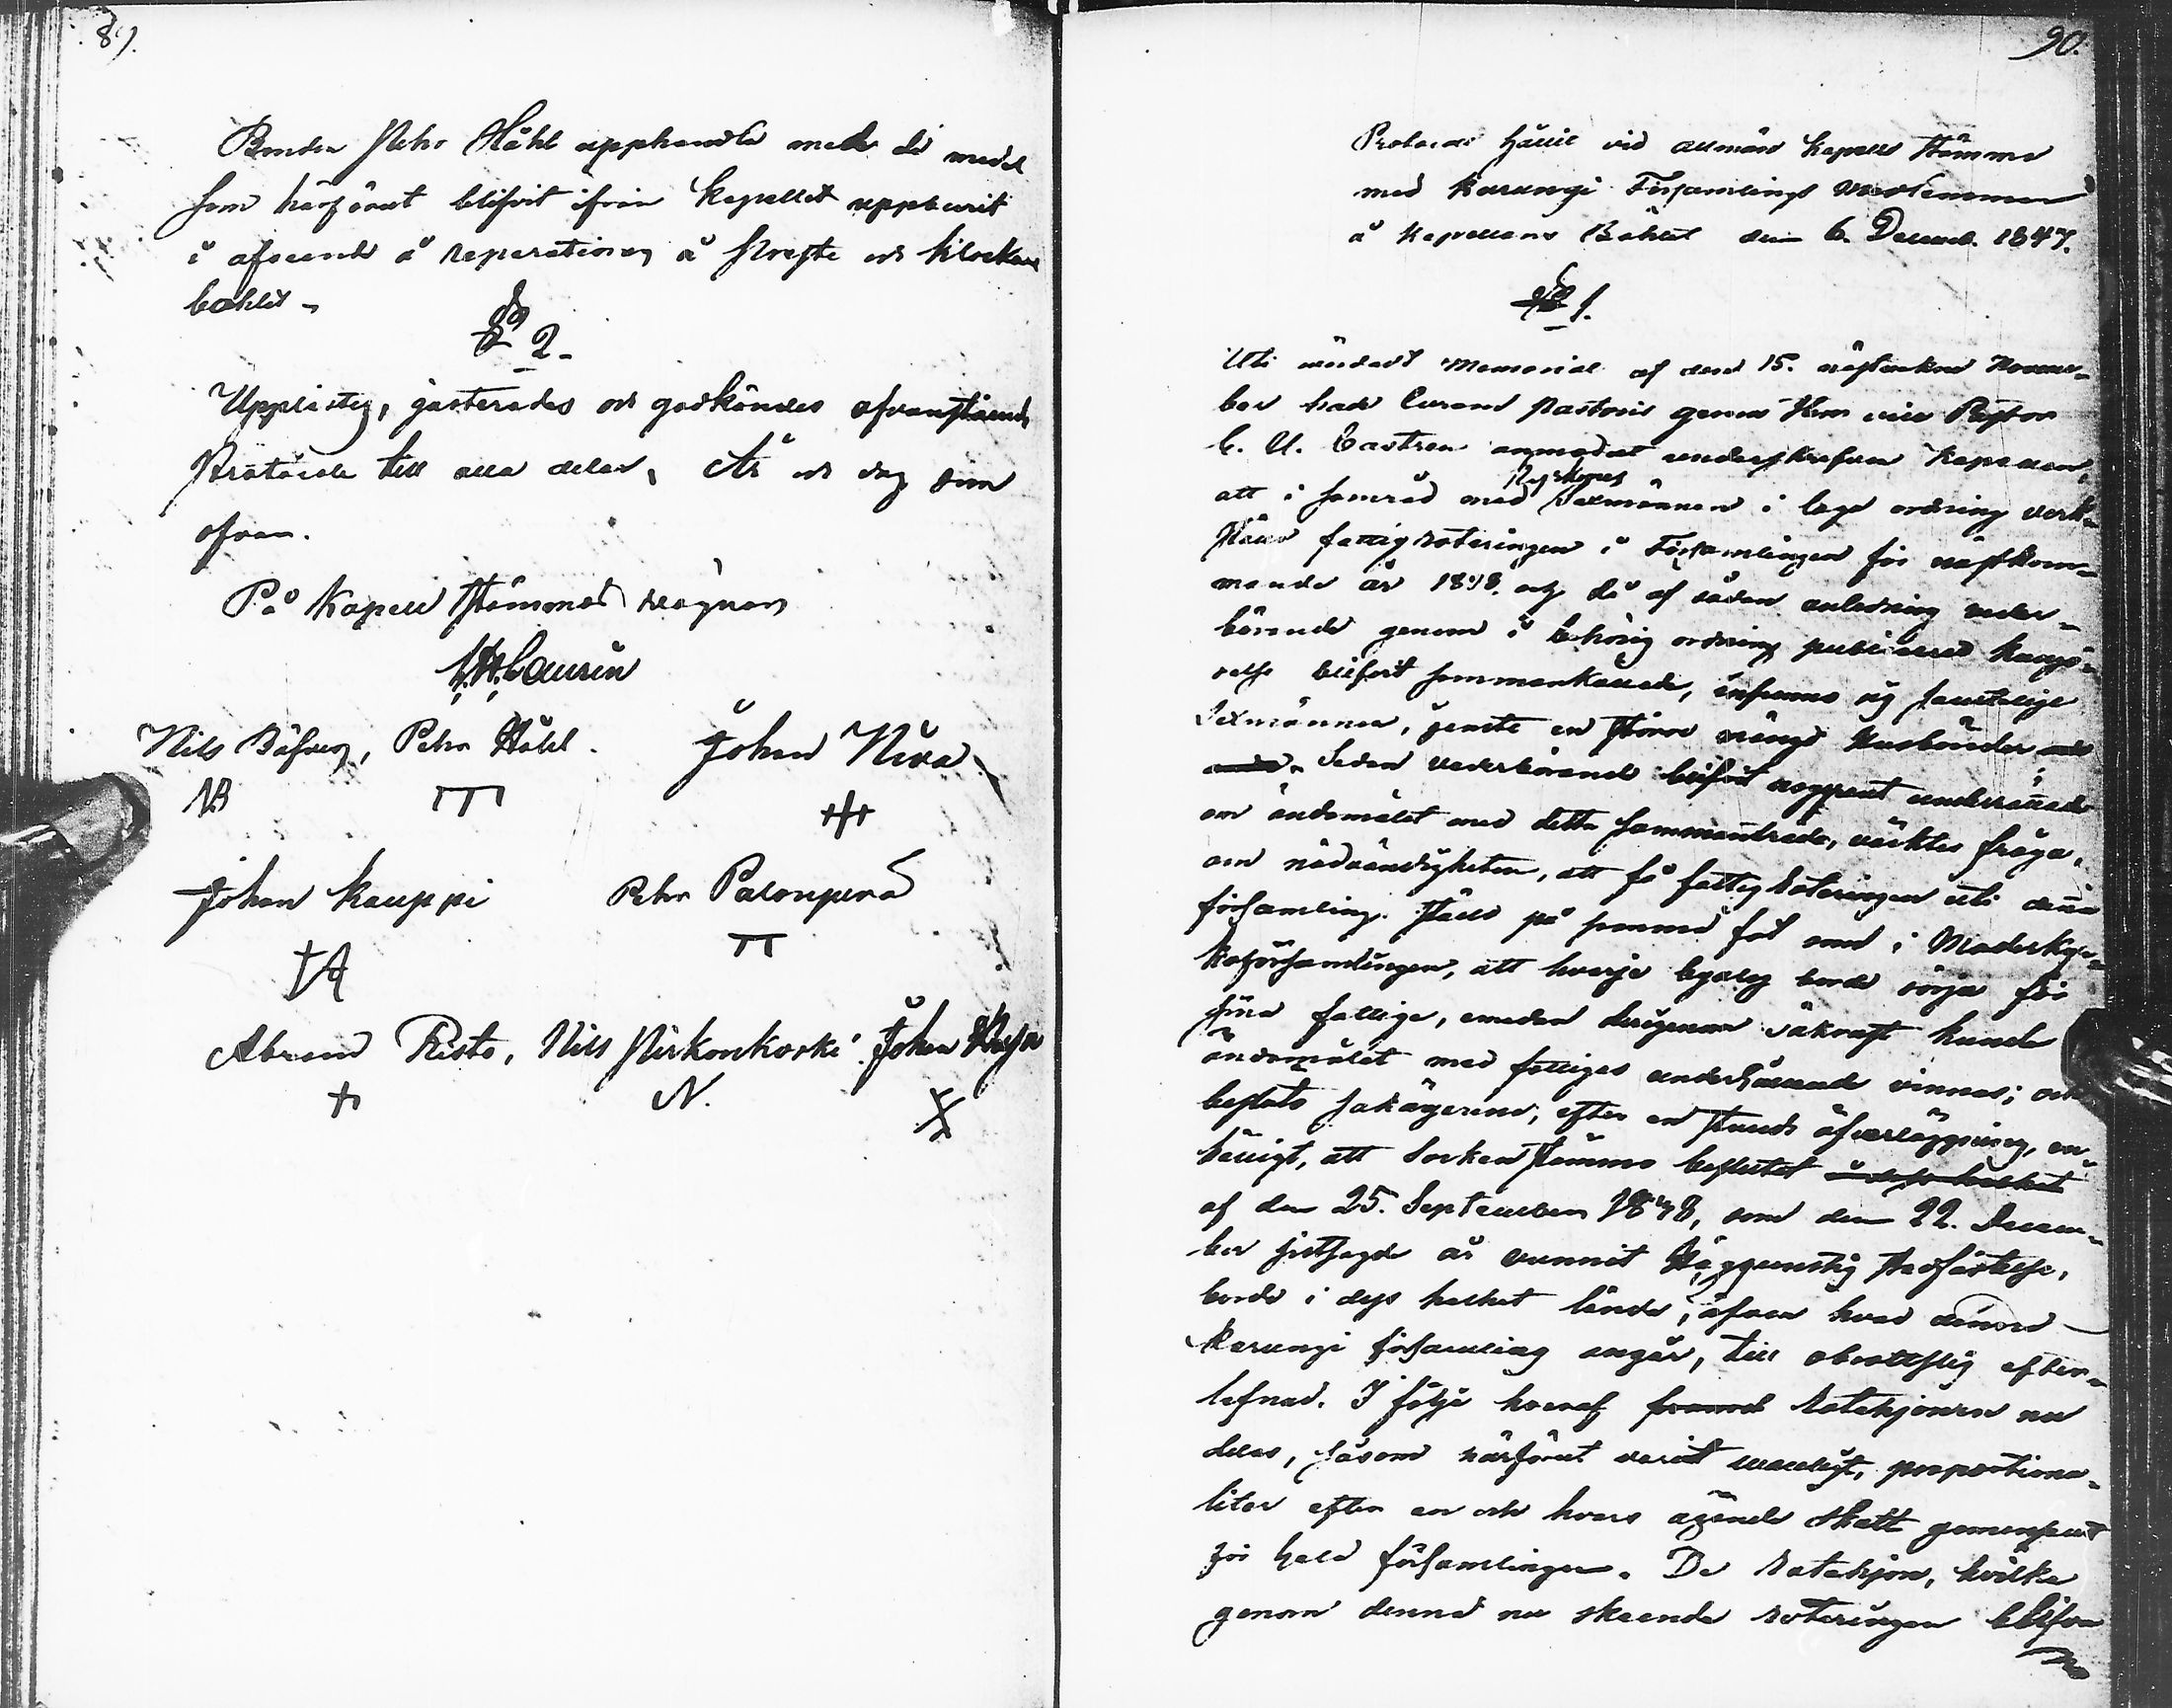 89.
Bonden Pehr Ståhl upphandla med de medel
som härförut blifvit ifrån Kapellet uppburit
i afseende å reperationen å Preste och Klockare
bohlet –
§ 2.
Upplästes, justerades och godkändes ofvanstående
Protocoll till alla delar, År och dag som
ofvan.
På Kapell Stämmans vägnar
Laurin
Nils Båfve, Pehr Ståhl. Johan Niva
NB
Johan Kauppi Pehr Palonperä
Abram Risto, Nils Pirkonkoski Johan
N.
90.
Protocoll hållit vid allmän Kapells Stämma
med Karungi Församlings Medlemmar
å Kapellans Bohlet den 6. Decemb. 1847.
§ 1.
Uti utfärdadt Memorial af den 15. nästvekne Novem-
ber hade Curam Pastoris genom Herr vice Pastor
C. U. Castren anmodat underskrefven Kapellan,
Kyrkones
att i samråd med Sexmännen i laga ordning verk-
ställa fattigroteringen i Församlingen för nästkom-
mande år 1848. och då af sådan anledning veder-
börande genom i behörig ordning publicerad kungö-
relse blifvit sammankallade, infunno sig samtelige
Sexmännen, jemte en större mängd Husbönder och
andre. Sedan vederbörande blifvit noggrant underrättade
om ändamålet med detta sammanträde, väcktes fråga,
om nödvändigheten, att få fattig roteringen uti denna
församling ställd på samma fot som i Moderkyr-
koförsamlingen, att hvarje byalag borde sörja för
sina fattige, emedan derigenom säkrast kunde
ändamålet med fattiges underhållande vinnas; och
beslöts sakägerne, efter en stunds öfverläggning, en-
hälligt, att Sockenstämmo beslutet i dess helhet
af den 25. September 1848, som den 22. Decem-
ber sistsagde år vunnit Höggunstig Stadfästelse,
borde i dess helhet lända, äfven hvad denna
Karungi församling angår, till obrottslig efter-
lefnad. I följe hvaraf framed Rotehjonen nu
delas, såsom härförut varit vanligt, proportiona-
liter efter en och hvars ägande Skatt gemensamt
för hela församlingen. De Rotehjon, hvilka
genom denna nu skeende roteringen blifva